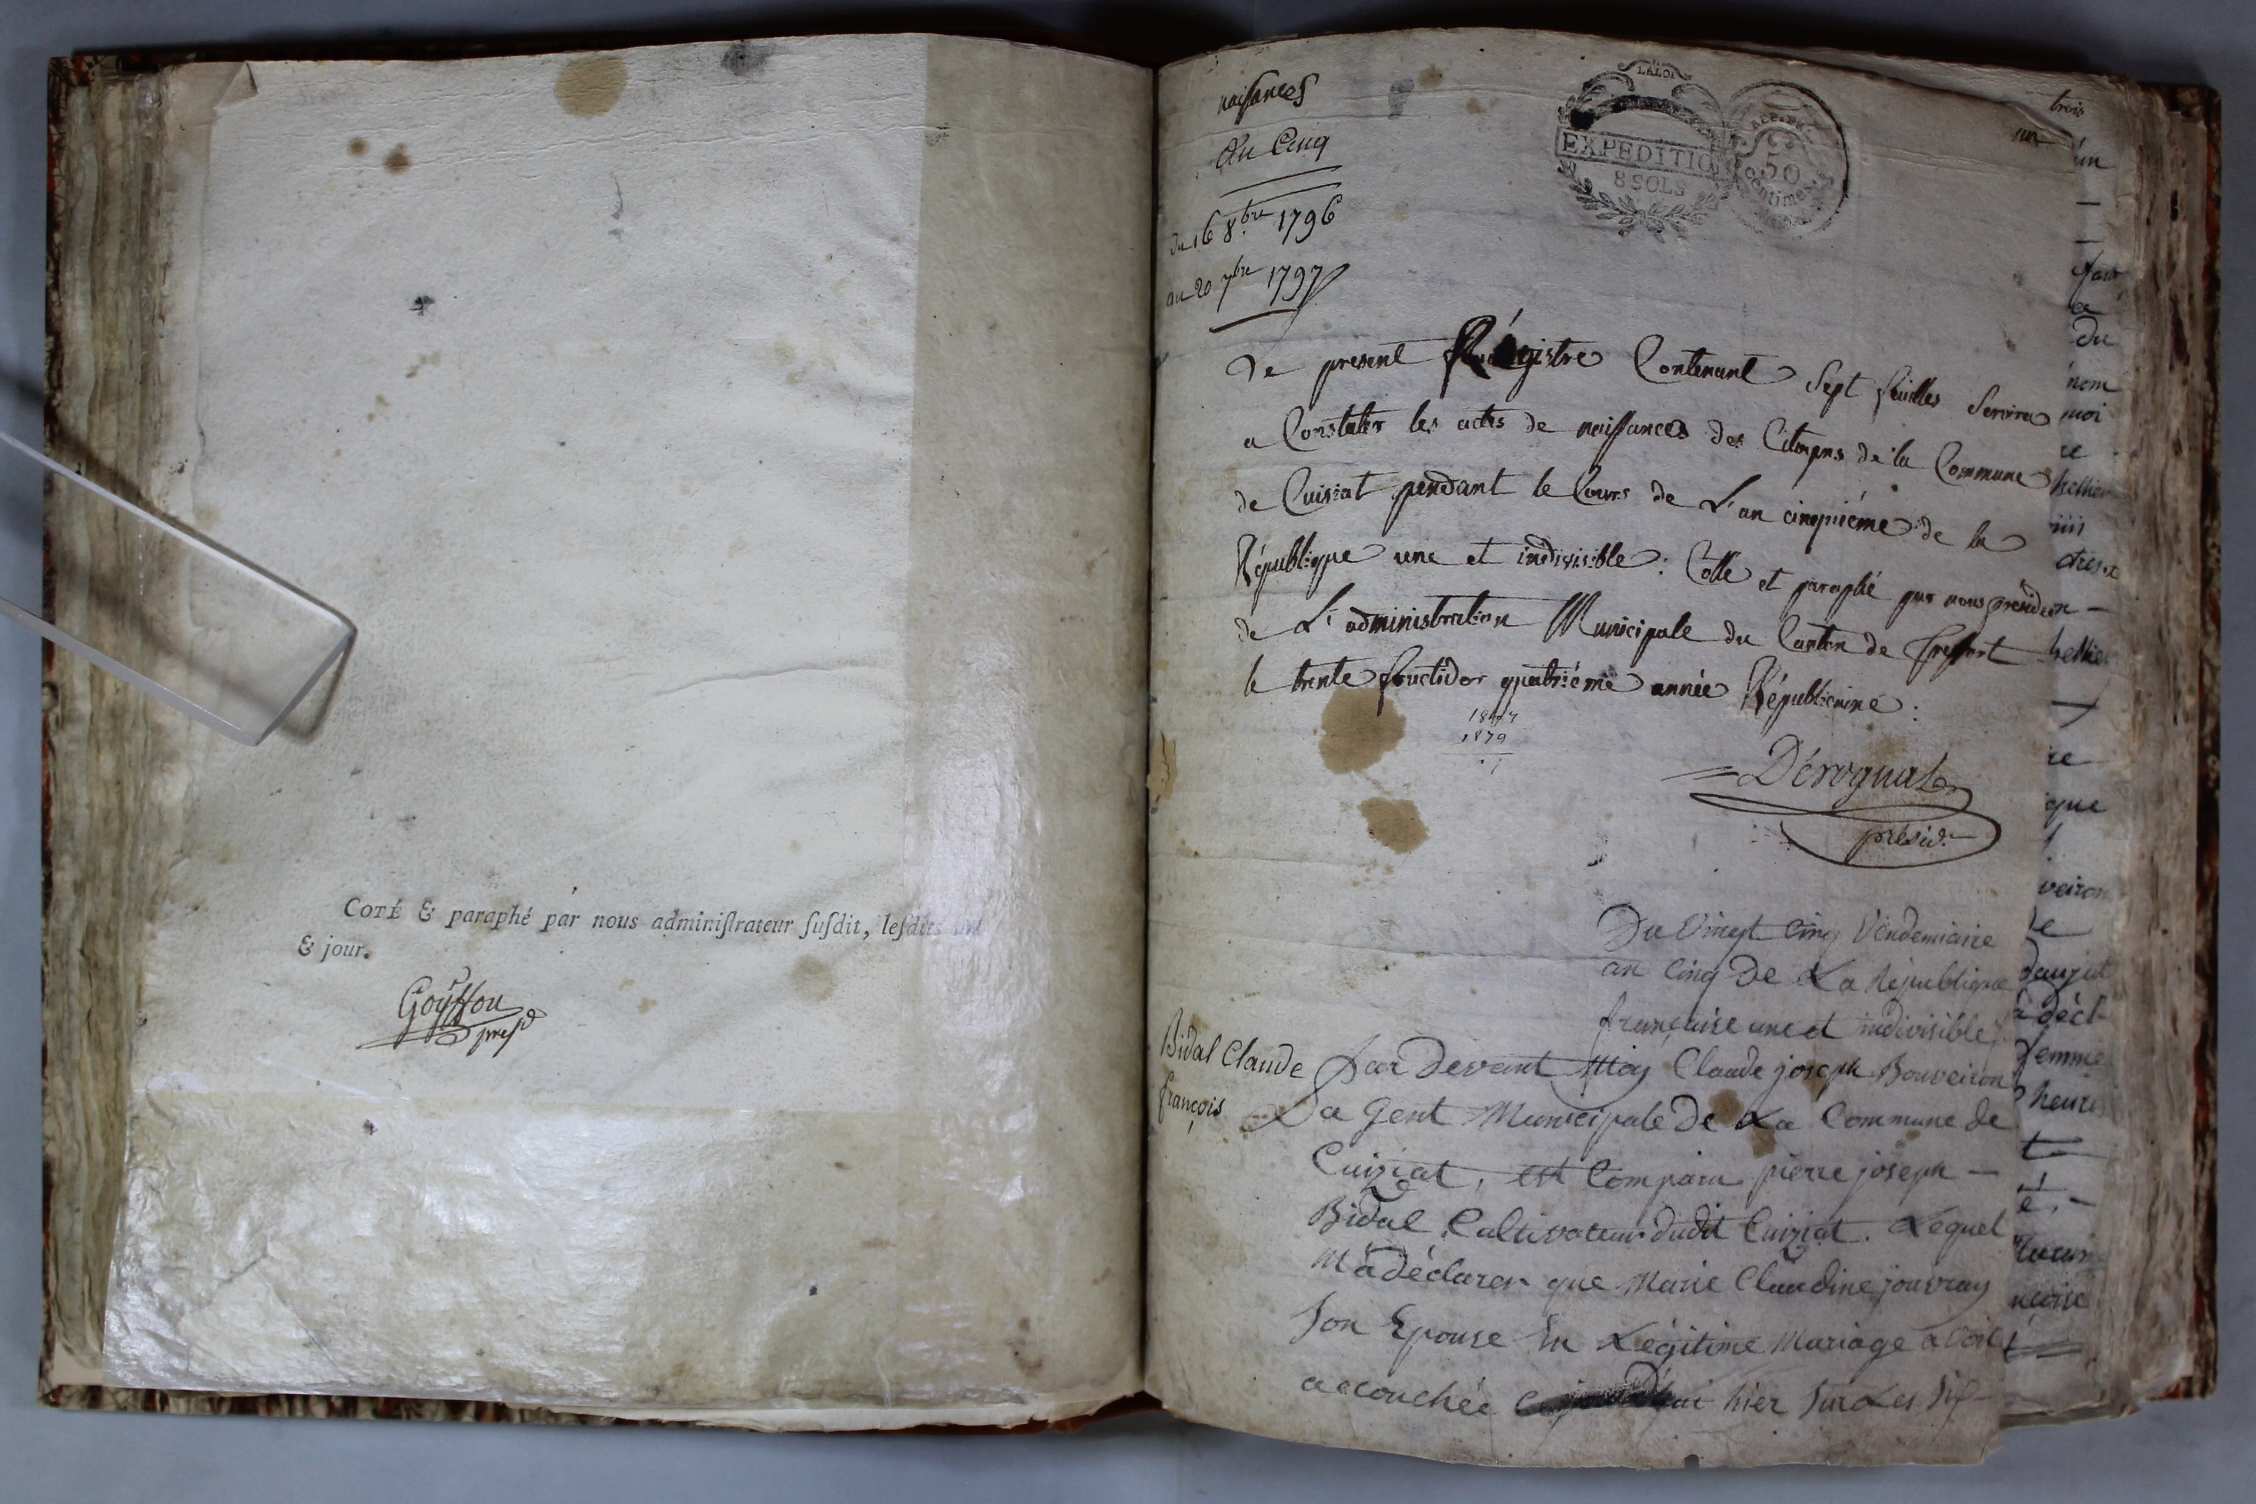 COTÉ & paraphé par nous administrateur susdit, lesdits an
& jour.
Goÿffon
presd
naissances
an Cinq
du 16 8bre 1796
au 20 7bre 1797
LA LOI
EXPEDITION
8 SOLS
50
Centimes
trois
un
Le present Régistre Contenant Sept feuilles Servira
a Constater les actes de naissances des Citoyens de la Commune
de Cuisiat pendant le Cours de L'an cinquiéme de la
République une et indivisible : Cotté et paraphé par nous président
de L'administration Municipale du Canton de Treffort
le trente fructidor quatriéme année Républicaine :
1879
Dérognat
présid.
Du Vingt Cinq Vendemiaire
an Cinq de La République
française une et indivisible
Bidal Claude
françois
Par devant Moy Claude joseph Bouveiron
a Gent Municipale De La Commune de
Cuiziat, est Comparu pierre joseph —
Bidal Cultivateur dudit Cuiziat. Lequel
M'a déclarer que Marie Claudine jouvray
Son Epouse En Légitime Mariage a Voit
accouchée hier Sur Les Six
un
du
nom
moi
ce
re
que
veiron
le
décl
femme
heure